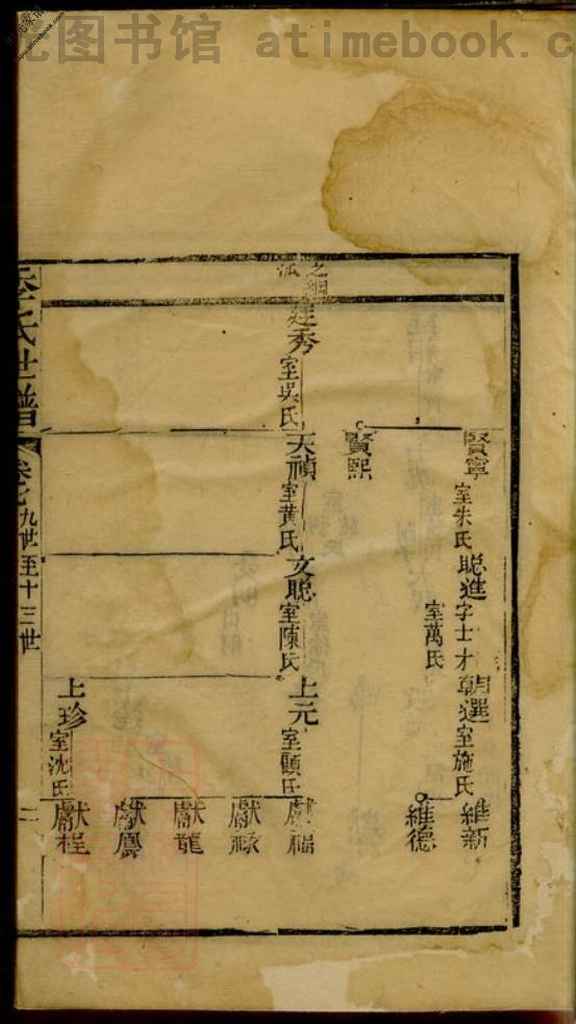 图书馆 atimebook.c
賢寧 室朱氏 聪進 字士才 室萬氏 朝選 室施氏 維新
維德
賢熙
廷秀 室吳氏 天禎 室黃氏 文聪 室陳氏 上元 室顧氏 獻福
獻龍
上珍 室沈氏 獻桯
氏世譜 卷之 九世至十三世 二